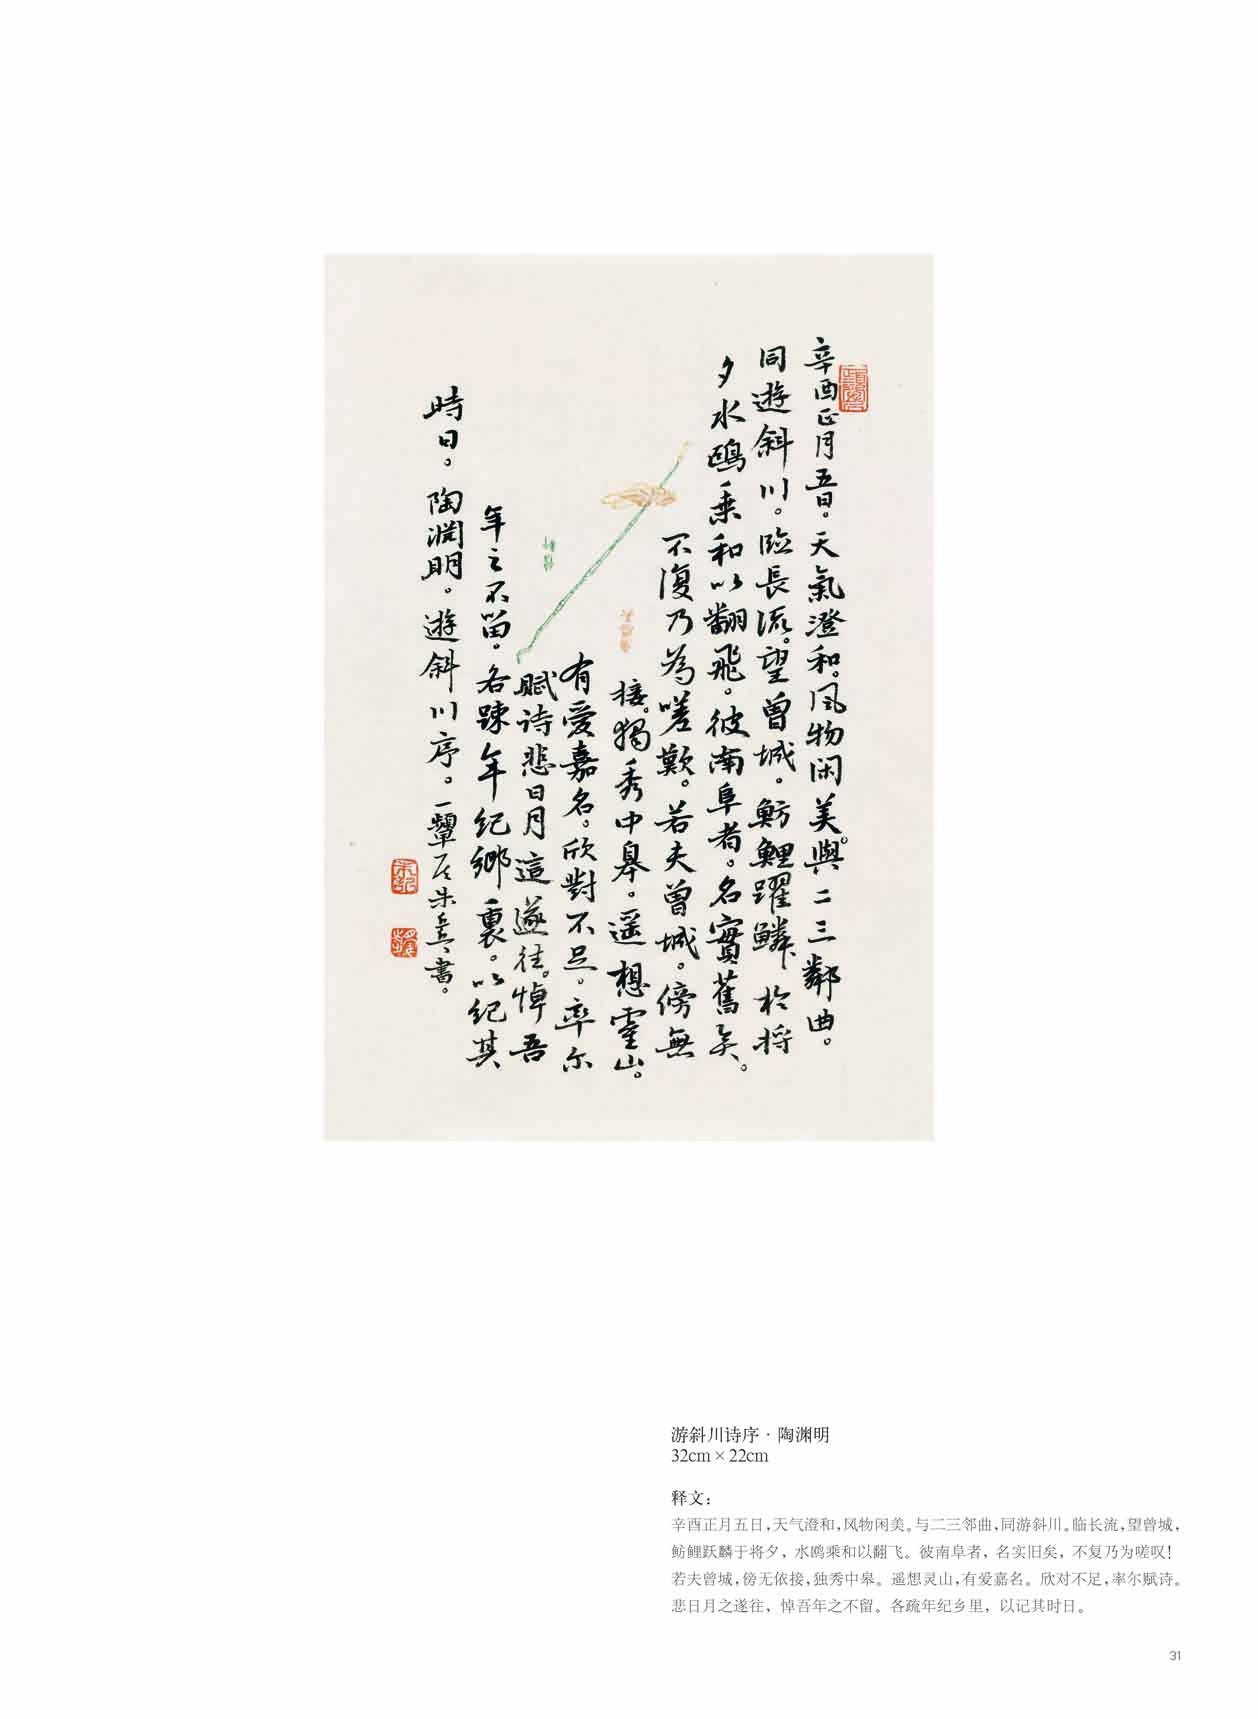 辛酉正月五日。天氣澄和。风物闲美。與二三鄰曲。
同遊斜川。臨長流。望曾城。魴鯉躍鱗於将
夕水鷗乗和以翻飛。彼南阜者。名實舊矣。
不復乃為嗟歎。若夫曾城。傍無
接。獨秀中皋。遥想靈山。
有愛嘉名。欣對不足。率尔
賦诗悲日月這遂往。悼吾
年之不留。各踈年纪鄉裏。以纪其
時日。陶渊明。遊斜川序。一 居朱 書。
游斜川诗序·陶渊明
32cm × 22cm
释文：
辛酉正月五日，天气澄和，风物闲美。与二三邻曲，同游斜川。临长流，望曾城，
鲂鲤跃麟于将夕，水鸥乘和以翻飞。彼南阜者，名实旧矣，不复乃为嗟叹！
若夫曾城，傍无依接，独秀中皋。遥想灵山，有爱嘉名。欣对不足，率尔赋诗。
悲日月之遂往，悼吾年之不留。各疏年纪乡里，以记其时日。
31